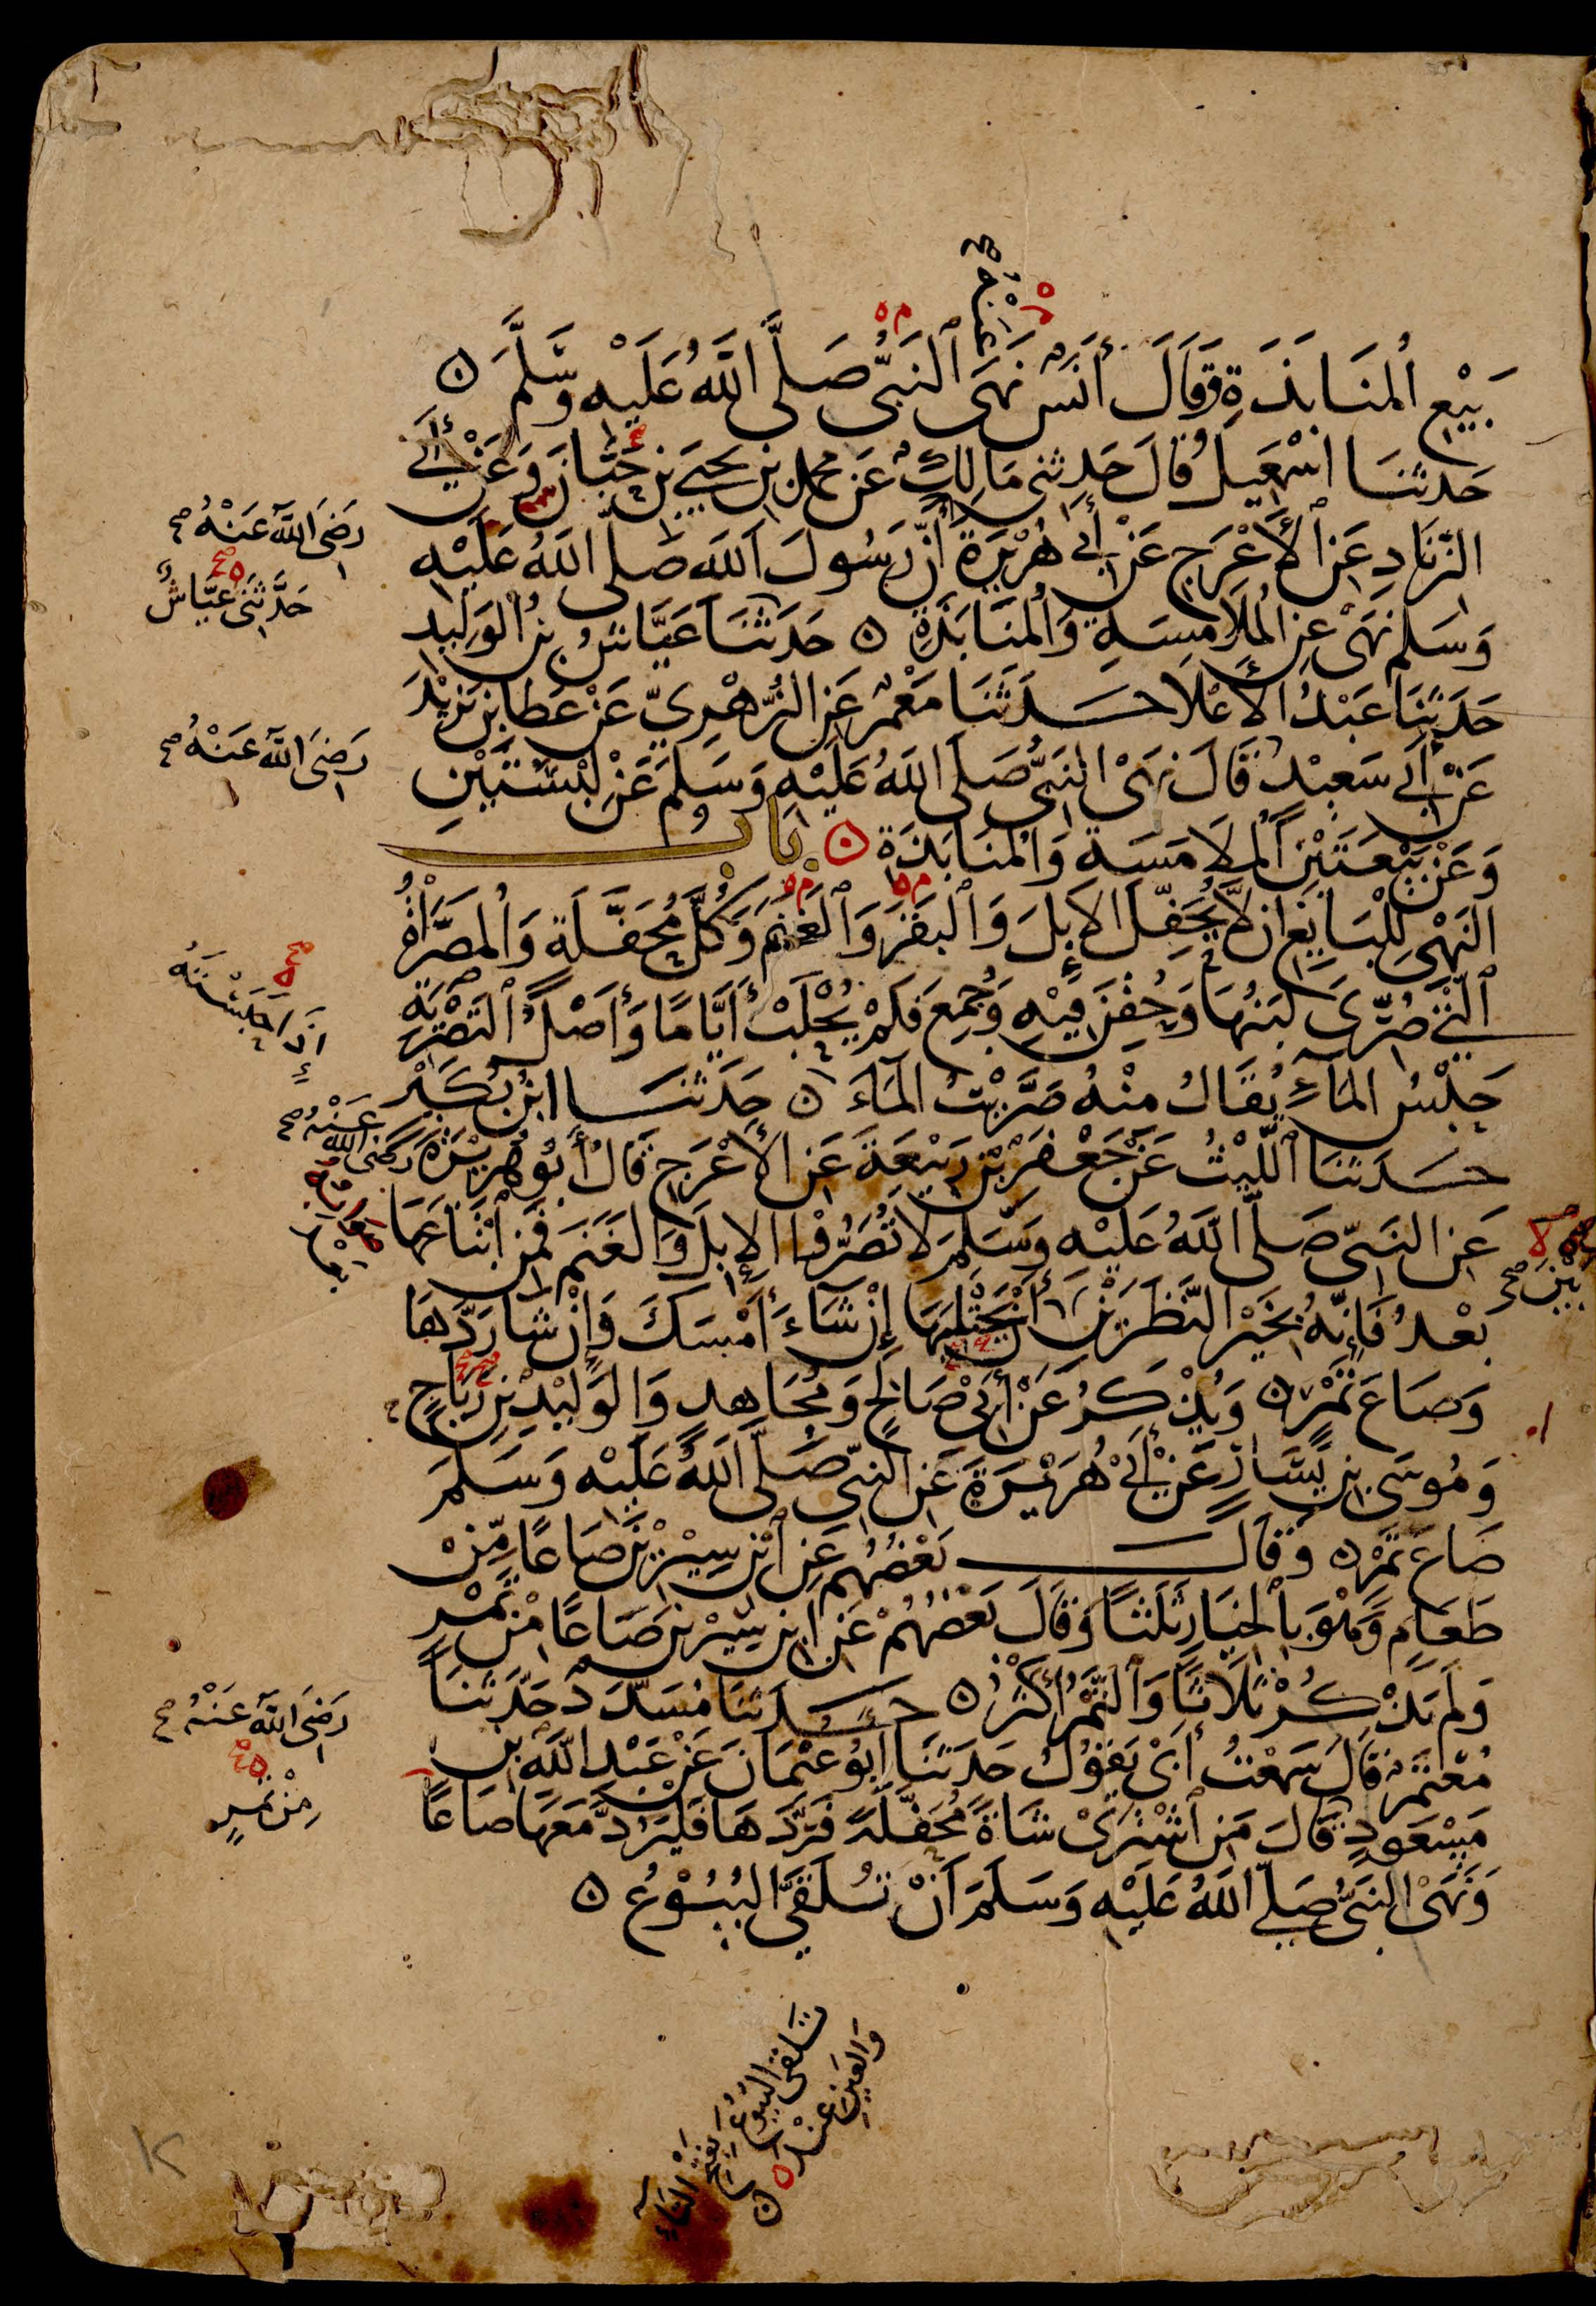 عنه صح
بَيْعِ ٱلمنَابَذَةِ وَقَالَ أَنَسٌ نَهَى ٱلنَبِيُّ صَلَّى ٱللَّهُ عَلَيْهِ وَسَّلَّمَ ٥
حَدثنَا اسْمٰعِيلُ قَالَ حَدثنى مَالِكٌ عَن محمد بن يحيَى بن حَبَّانَ وَعَنْ أَبِي
الزِنَادِ عَنِ ٱلأَعْرَجِ عَنْ أَبِي هُرَيْرَةَ أَنَّ رَسُولَ اَللهِ صَلى اَللهُ عَلَيْهِ
رَضِىَ اللَّهُ عَنْهُ صح
وَسَلم نَهَىْ عَنِ المُلَامَسَةِ وَالمُنَابَذَةِ ٥ حَدثَنَا عَيَّاشُ بنُ الْوَلِيدِ
حَدَّثَنى عَيَّاشٌ
حَدَثَنَا عَبْدُ الأَعْلَا حَدثَنَا مَعْمَرٌ عَنِ الزُّهْرِيِّ عَنْ عَطَا بنِ يَزِيْدَ
عَنْ أَبِي سَعِيْدٍ قَالَ نَهَىْ النَبيُّ صَلَى اللَهُ عَلَيْهِ وَسَلمَ عَنْ لِبْسَتَيْنِ
رَضِىَ اللَّهُ عَنْهُ صح
وَعَنْ بَيْعَتَيْنِ اَلْملَامَسَةِ وَالْمُنَابَذَةِ ٥ بَابُ
النَهْىِ لِلْبَايِعِ ان لاَّ يُحَفِّلَ الاِبِلَ وَٱلْبَقَرَ وَٱلْغَنَمَ وَكُلَّ مُحَفَّلَةٍ وَالْمصَرَّاةُ
ٱلَّتى صُرِّىَ لَبَنُهَا وَحُقِنَ فِيْهِ وَجُمِعَ فَلَمْ يُحْلَبْ أَيَّامًا وَأَصْلُ ٱلتَصْرِيَةِ
إِذَا حَبَسْتَهُ
حَبْسُ المَآءِ يُقَالُ مِنْهُ صَرَّيْتُ المَاءَ ٥ حَدثنَا ابْنُ بُكَيْرٍ
حَدَثَنَا ٱللَّيْثُ عَنْ جَعْفَرَ بْنِ رَبيْعَةَ عَنِ الأَعْرَجِ قَالَ أَبُو هُرَيْرَةَ رَضِىَ اللهُ عَنْهُ صح
عَنِ النَبِىّ صَلَّى اَللَّهُ عَلَيْهِ وَسَّلَمَ لَا تُصَرُّوْا الإبِلَ وَالْغَنَمَ فَمَنِ ٱبْتَاعَهَا
بَعْدُ فَإِنَّهُ بِخَيْرِ النَّظَرَيْنِ أَنْ يَحْتَلِبَهَا إِنْ شَاءَ أَمْسَكَ وَإِنْ شَا رَدَّهَا
بَيْنَ صح
وَصَاعَ تَمْرٍ ٥ وَيُذْكَرُ عَنْ أَبِىْ صَالِحٍ وَمُجَاهِدٍ وَالْوَلِيْدِ بْنِ رَبَاحٍ
وَمُوسَى بْنِ يَسَارٍ عَنْ أَبِىْ هُرَيْرَةَ عَنِ النبىّ صَلَّى اَللَّهُ عَلَيْهِ وَسَلَمَ
صَاعَ تَمْرٍ ٥ وَقَالَ بَعْضُهُم عَنِ ٱبْنِ سِيْرِيْنَ صَاعًا مِّنْ
طَعَامٍ وَهْوَ بالْخِيَارِ ثَلَثًا وَقَالَ بَعْضُهُمْ عَنِ ابنِ سِيْرِيْنَ صَاعًا مْنْ تَمْرٍ
وَلَم يَذْكُرْ ثَلَاثًا وَٱلتَّمْرُ أَكْثَرُ ٥ حَدثنَا مُسَدَّدٌ حَدَّثنَا
مُعْتَمِرٌ قَالَ سَمعْتُ أَبِىْ يَقُوْلُ حَدَثَنَا أَبُو عُثْمَانَ عَنْ عَبْدِ اللَّهِ بْنِ
رَضِىَ اللَّهُ عَنْهُ صح
مَسْعُودٍ قَالَ مَنِ ٱشْتَرَىْ شَاةً مُحَفَّلَةً فَرَّدَهَا فَلْيَرُدَّ مَعَهَا صَاعًا
مِنْ تَمْرٍ
وَنَهَىْ النَبىُّ صَلَّى اللَّهُ عَلَيْهِ وَسَلَمَ أَنْ تُلَقَّى الْبُيُوْعُ ٥
تَلَقَّى الْبُيُوعَ بَفَتْحِ التَاءِ
وَالْعَيْنِ عِنْدَ